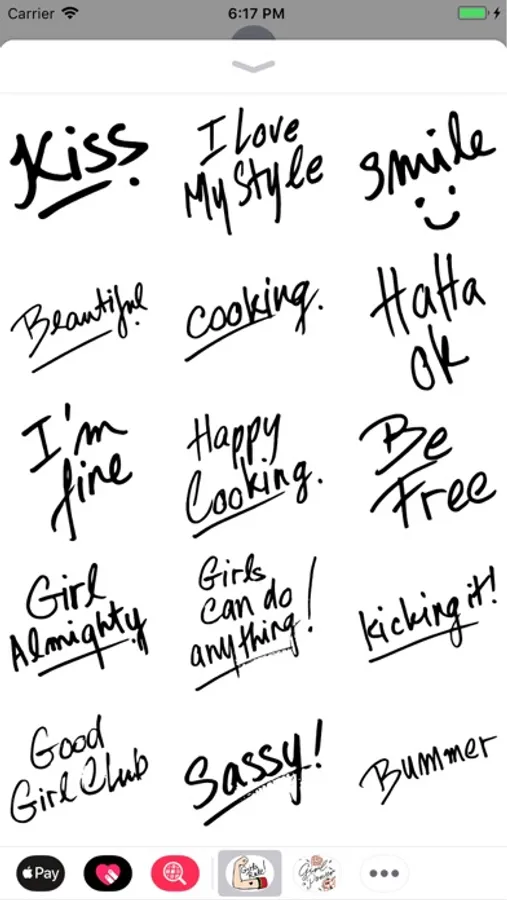 Carrier 6:17 PM
Kiss.
I Love
My Style
smile
Beautiful
cooking.
HaHa
ok
I'm
fine
Happy
Cooking.
Be
Free
Girl
Almighty
Girls
can do
anything!
kicking it!
Good
Girl Club
Sassy!
Bummer
Pay
Girls
Rule!
Girl
Power